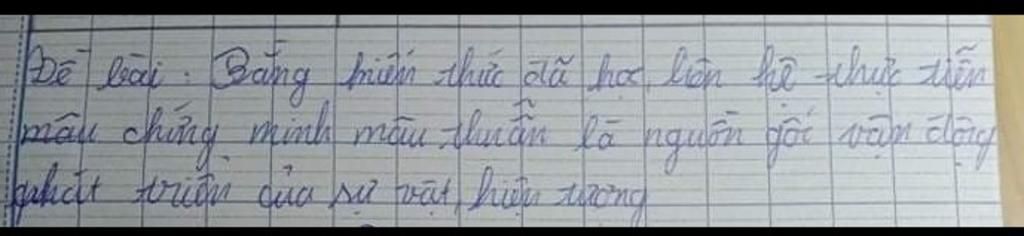 Đề bài: Bằng kiến thức đã học, liên hệ thực tiễn
mâu chứng minh mâu thuẫn là nguồn gốc vận động
phát triển của sự vật, hiện tượng